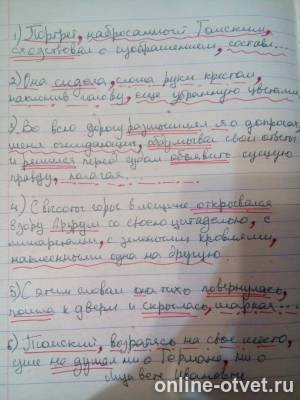 1) Портрет, набросанный Томским,
сходствовал с изображением, состав...
2) Она сидела, сложа руки крестом,
наклонив голову, еще убранную цветами
3) Во всю дорогу размышлял я о допросах,
меня ожидающих, обдумывал свои ответы
и решился перед судом объявить сущую
правду, полагая...
4) С высоты горы в лощине открывался
взору Арзрум со своею цитаделью, с
минаретами, с зелеными кровлями,
наклеенными одна на другую.
5) С этим словом она тихо повернулась,
пошла к двери и скрылась, шаркая...
6) Томский, возвратясь на свое место,
уже не думал ни о Германе, ни о
Лизавете Ивановне
online-otvet.ru